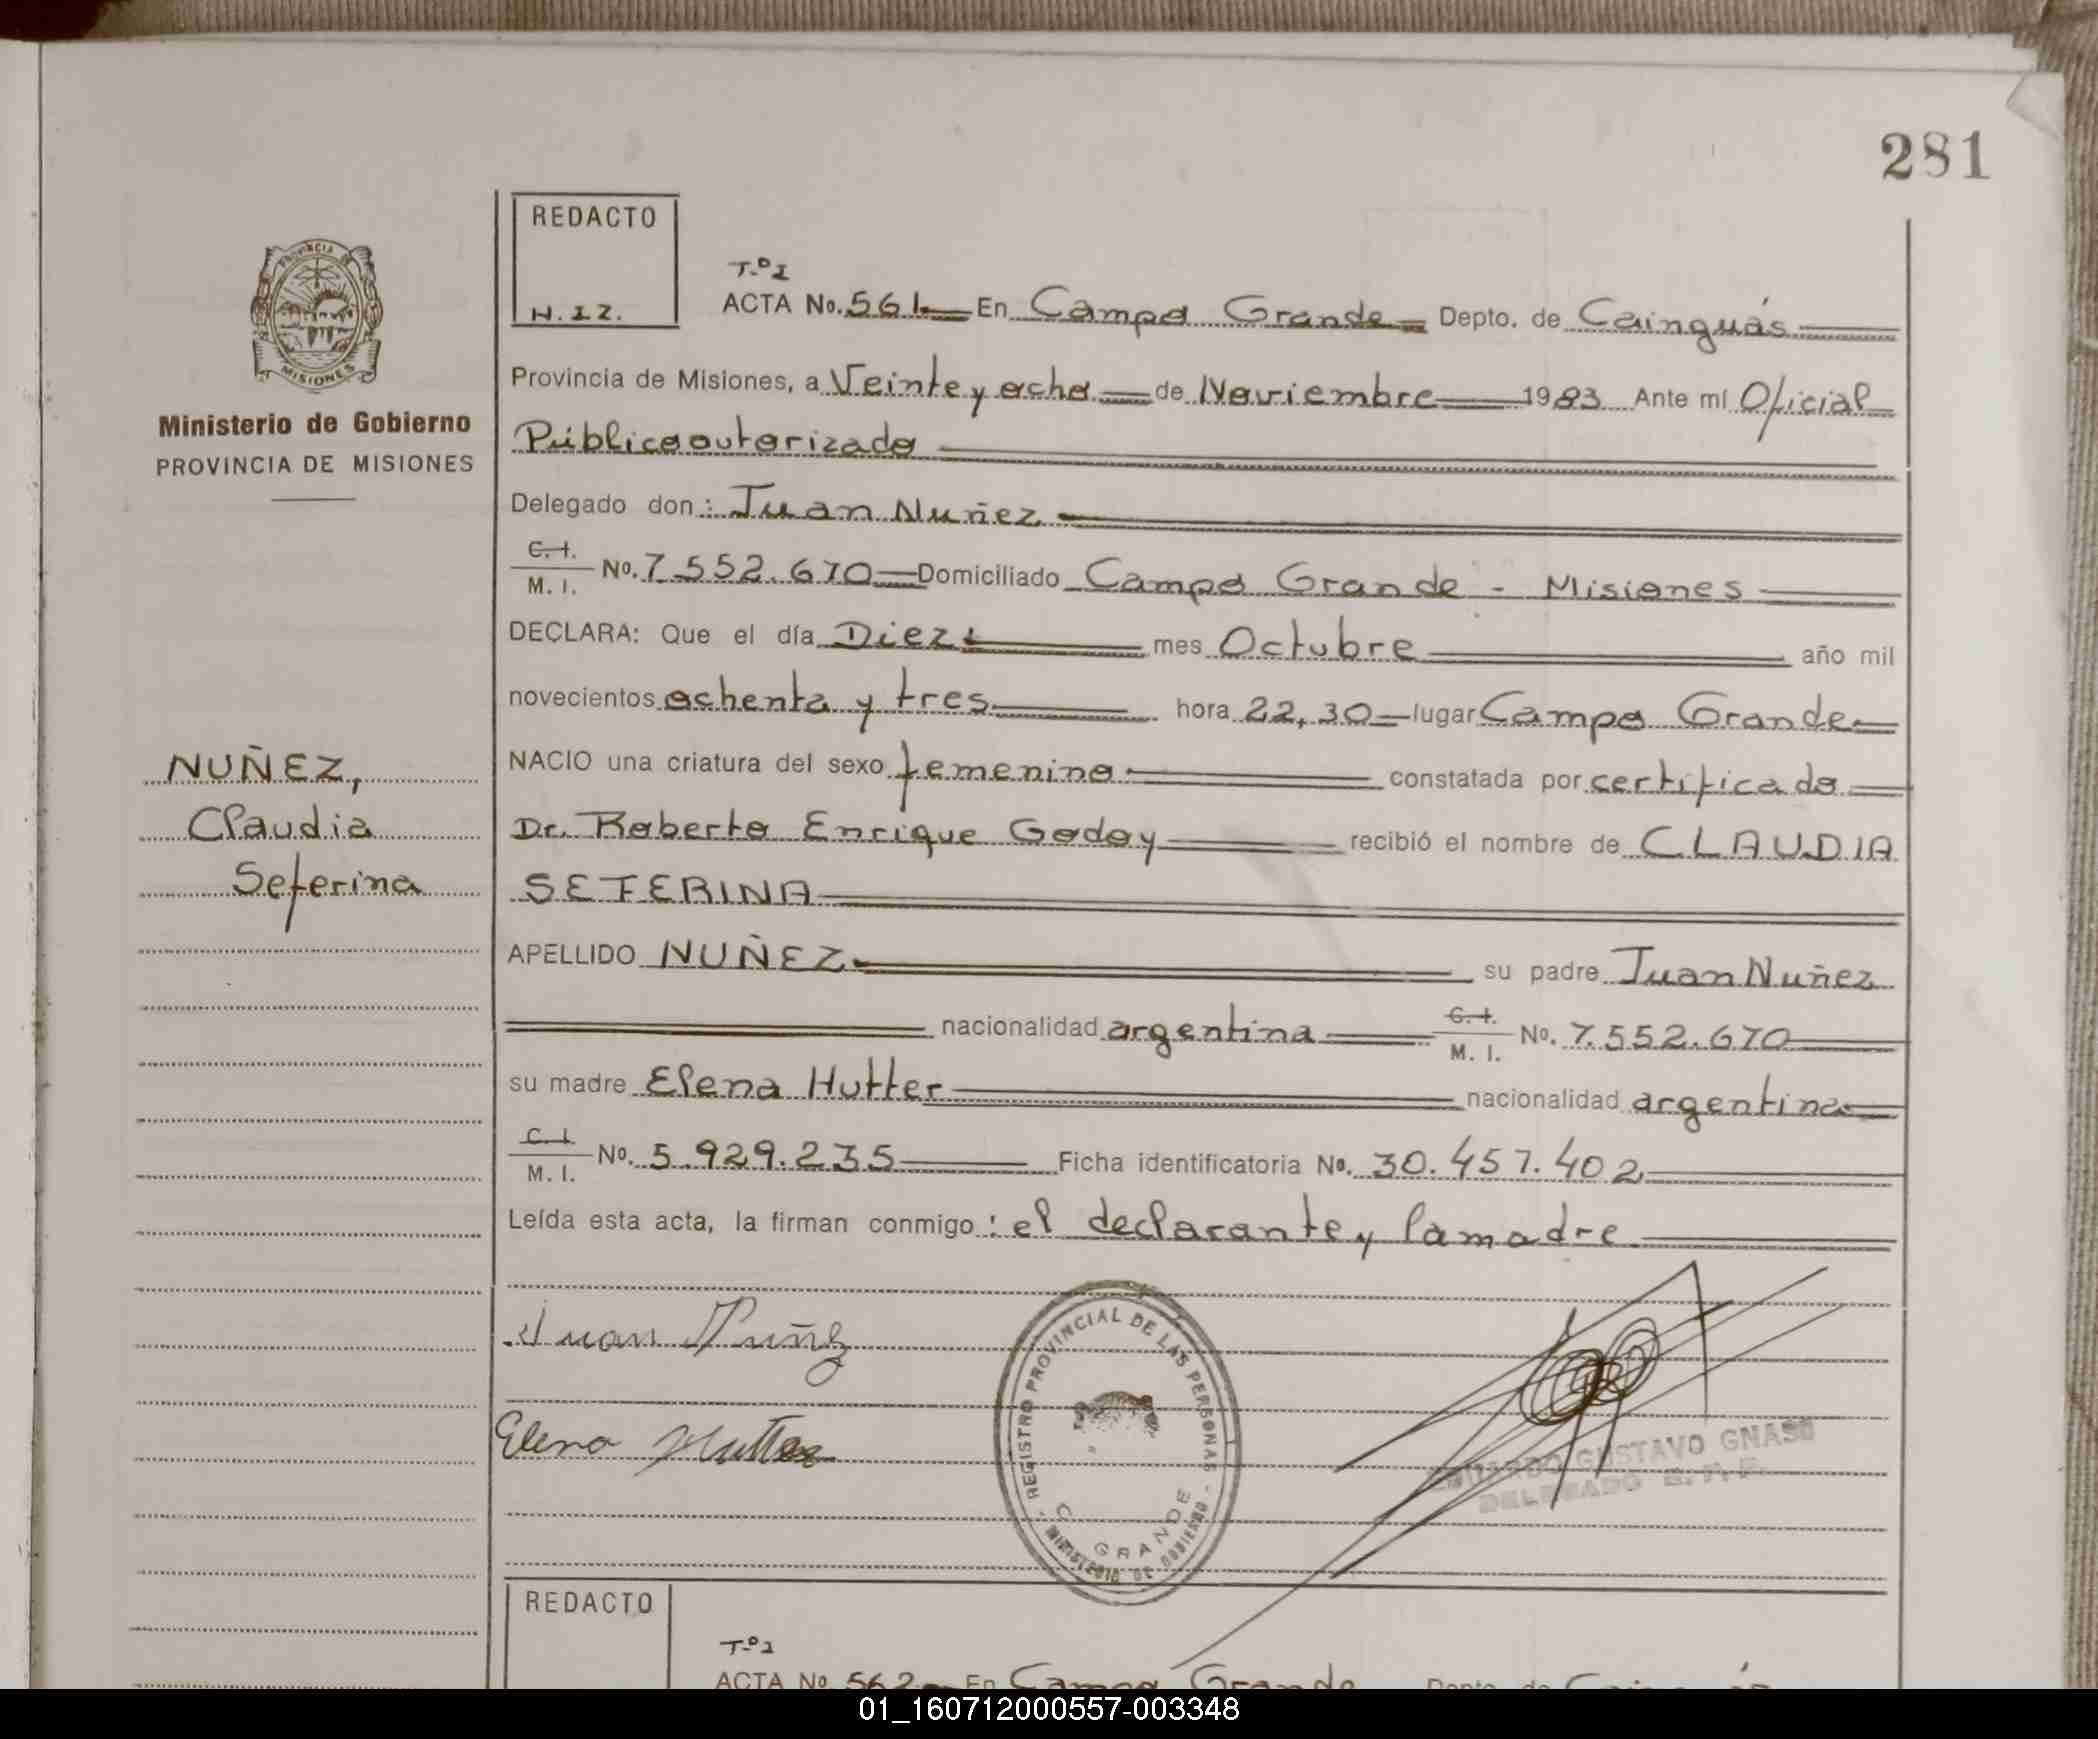 281
REDACTO
H.I.Z.
T.º 1
ACTA No. 561 En Campo Grande Depto. de Cainguás
PROVINCIA DE
MISIONES
Ministerio de Gobierno
PROVINCIA DE MISIONES
Provincia de Misiones, a Veinte y ocho de Noviembre 1983 Ante mí Oficial
Público autorizado
Delegado don: Juan Nuñez
C.I.
M. I. No. 7.552.670 Domiciliado Campo Grande - Misiones
DECLARA: Que el día Diez mes Octubre año mil
novecientos ochenta y tres hora 22,30 lugar Campo Grande
NACIO una criatura del sexo femenino constatada por certificado
Dr. Roberto Enrique Godoy recibió el nombre de CLAUDIA
SEFERINA
NUÑEZ,
Claudia
Seferina
APELLIDO NUÑEZ su padre Juan Nuñez
nacionalidad argentina C.I. M. I. No. 7.552.670
su madre Elena Hutter nacionalidad argentina
C.I.
M. I. No. 5.929.235 Ficha identificatoria No. 30.457.402
Leída esta acta, la firman conmigo: el declarante y la madre
Juan Nuñez
Elena Hutter
REGISTRO PROVINCIAL DE LAS PERSONAS
C. GRANDE
MINISTERIO DE GOBIERNO
EDUARDO GUSTAVO GNASS
DELEGADO R. P. P.
REDACTO
T.º 1
ACTA No. 562 En Campo Grande Depto. de Cainguás
01_160712000557-003348